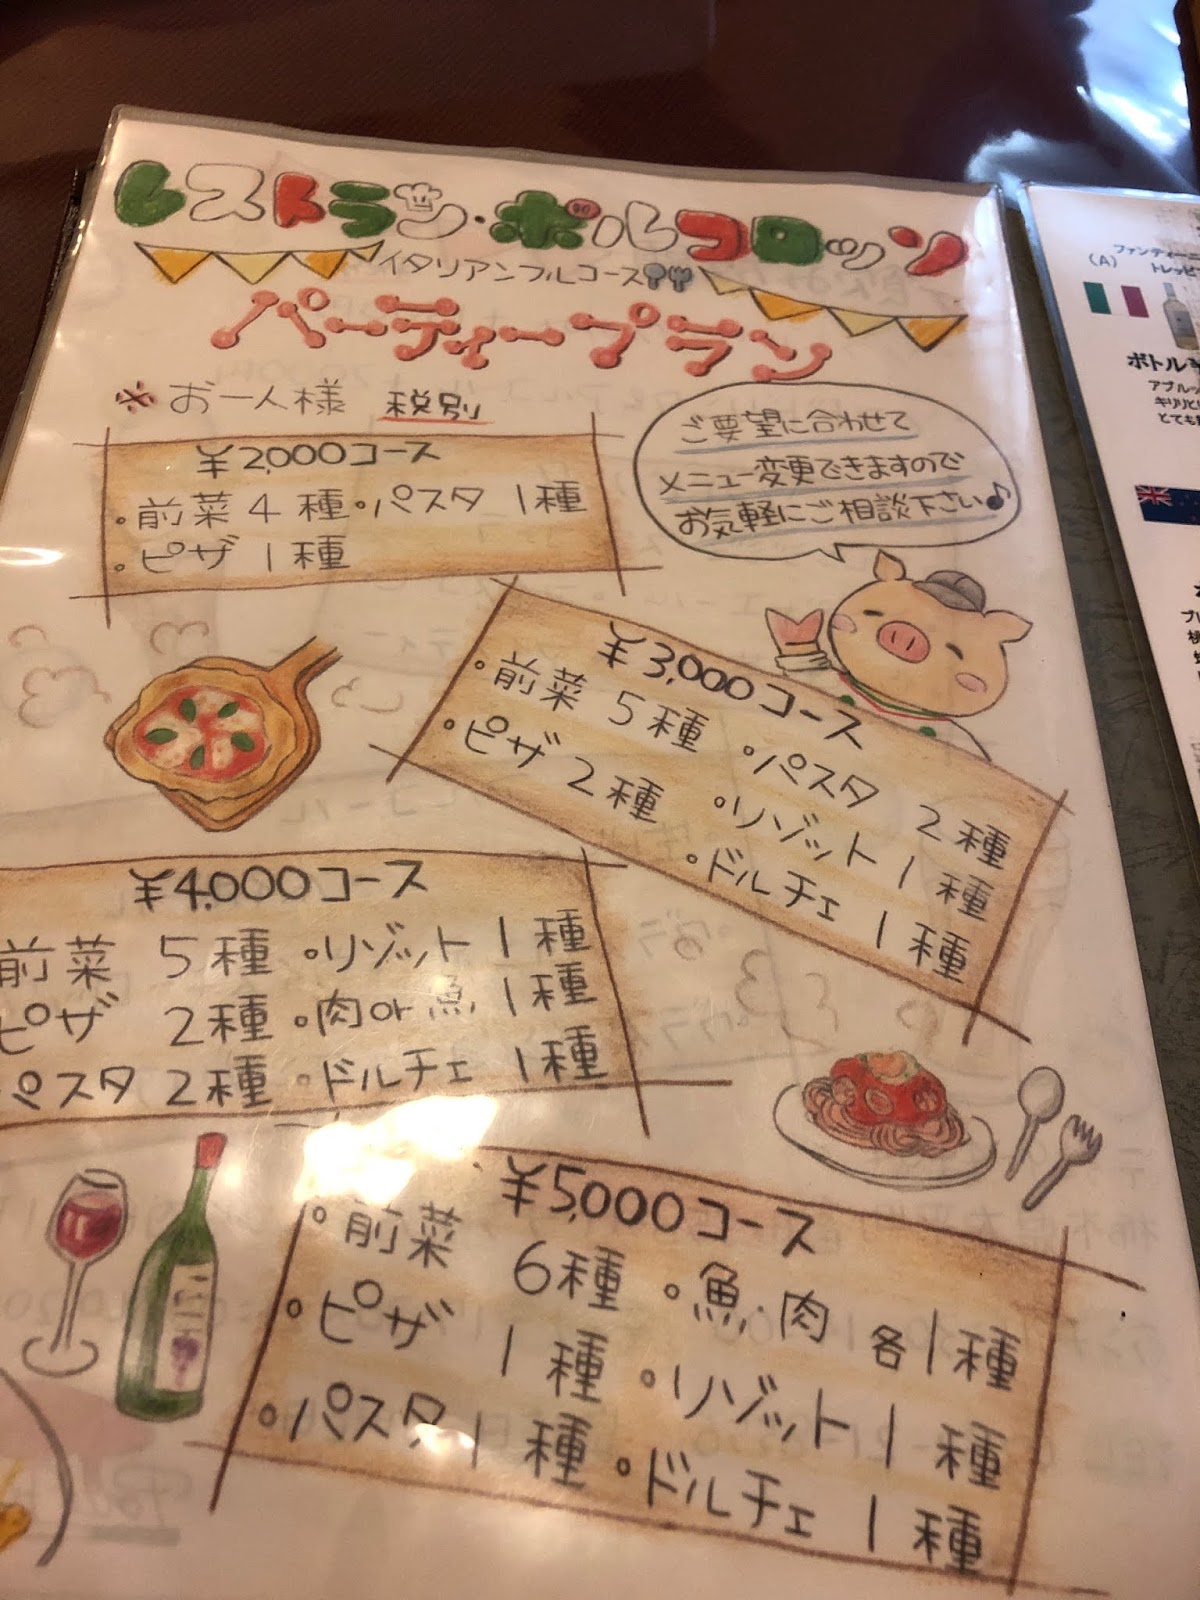 レストラン・ポルコロッソ
イタリアンフルコース
パーティープラン
※お一人様 税別
ご要望に合わせて
メニュー変更できますので
お気軽にご相談下さい♪
¥2,000コース
。前菜 4 種 。パスタ 1種
。ピザ 1種
¥3,000コース
。前菜 5種 。パスタ 2種
。ピザ 2種 。リゾット 1種
。ドルチェ 1種
¥4,000コース
前菜 5種 。リゾット 1種
ピザ 2種 。肉or魚 1種
パスタ 2種 。ドルチェ 1種
¥5,000コース
。前菜 6種 。魚、肉 各1種
。ピザ 1種 。リゾット 1種
。パスタ 1種 。ドルチェ 1種
(A) ファンティーニ
トレッビ
ボトル¥
アブルッ
キリリと
とても